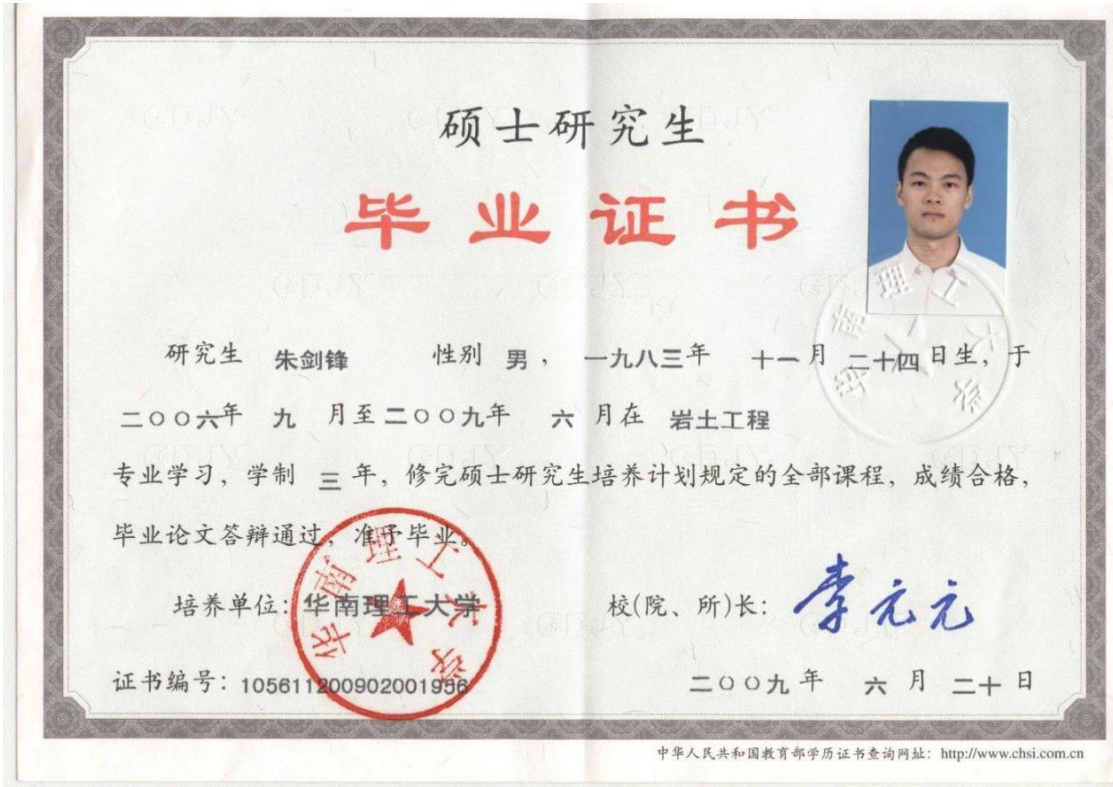 硕士研究生
毕业证书
研究生 朱剑锋 性别 男，一九八三年 十一月 二十四日生，于
二〇〇六年 九 月至二〇〇九年 六 月在 岩土工程
专业学习，学制 三 年，修完硕士研究生培养计划规定的全部课程，成绩合格，
毕业论文答辩通过，准予毕业。
培养单位：华南理工大学 校(院、所)长：李元元
华南理工大学
华南理工大学
证书编号：105611200902001956 二〇〇九年 六 月 二十日
中华人民共和国教育部学历证书查询网址：http://www.chsi.com.cn